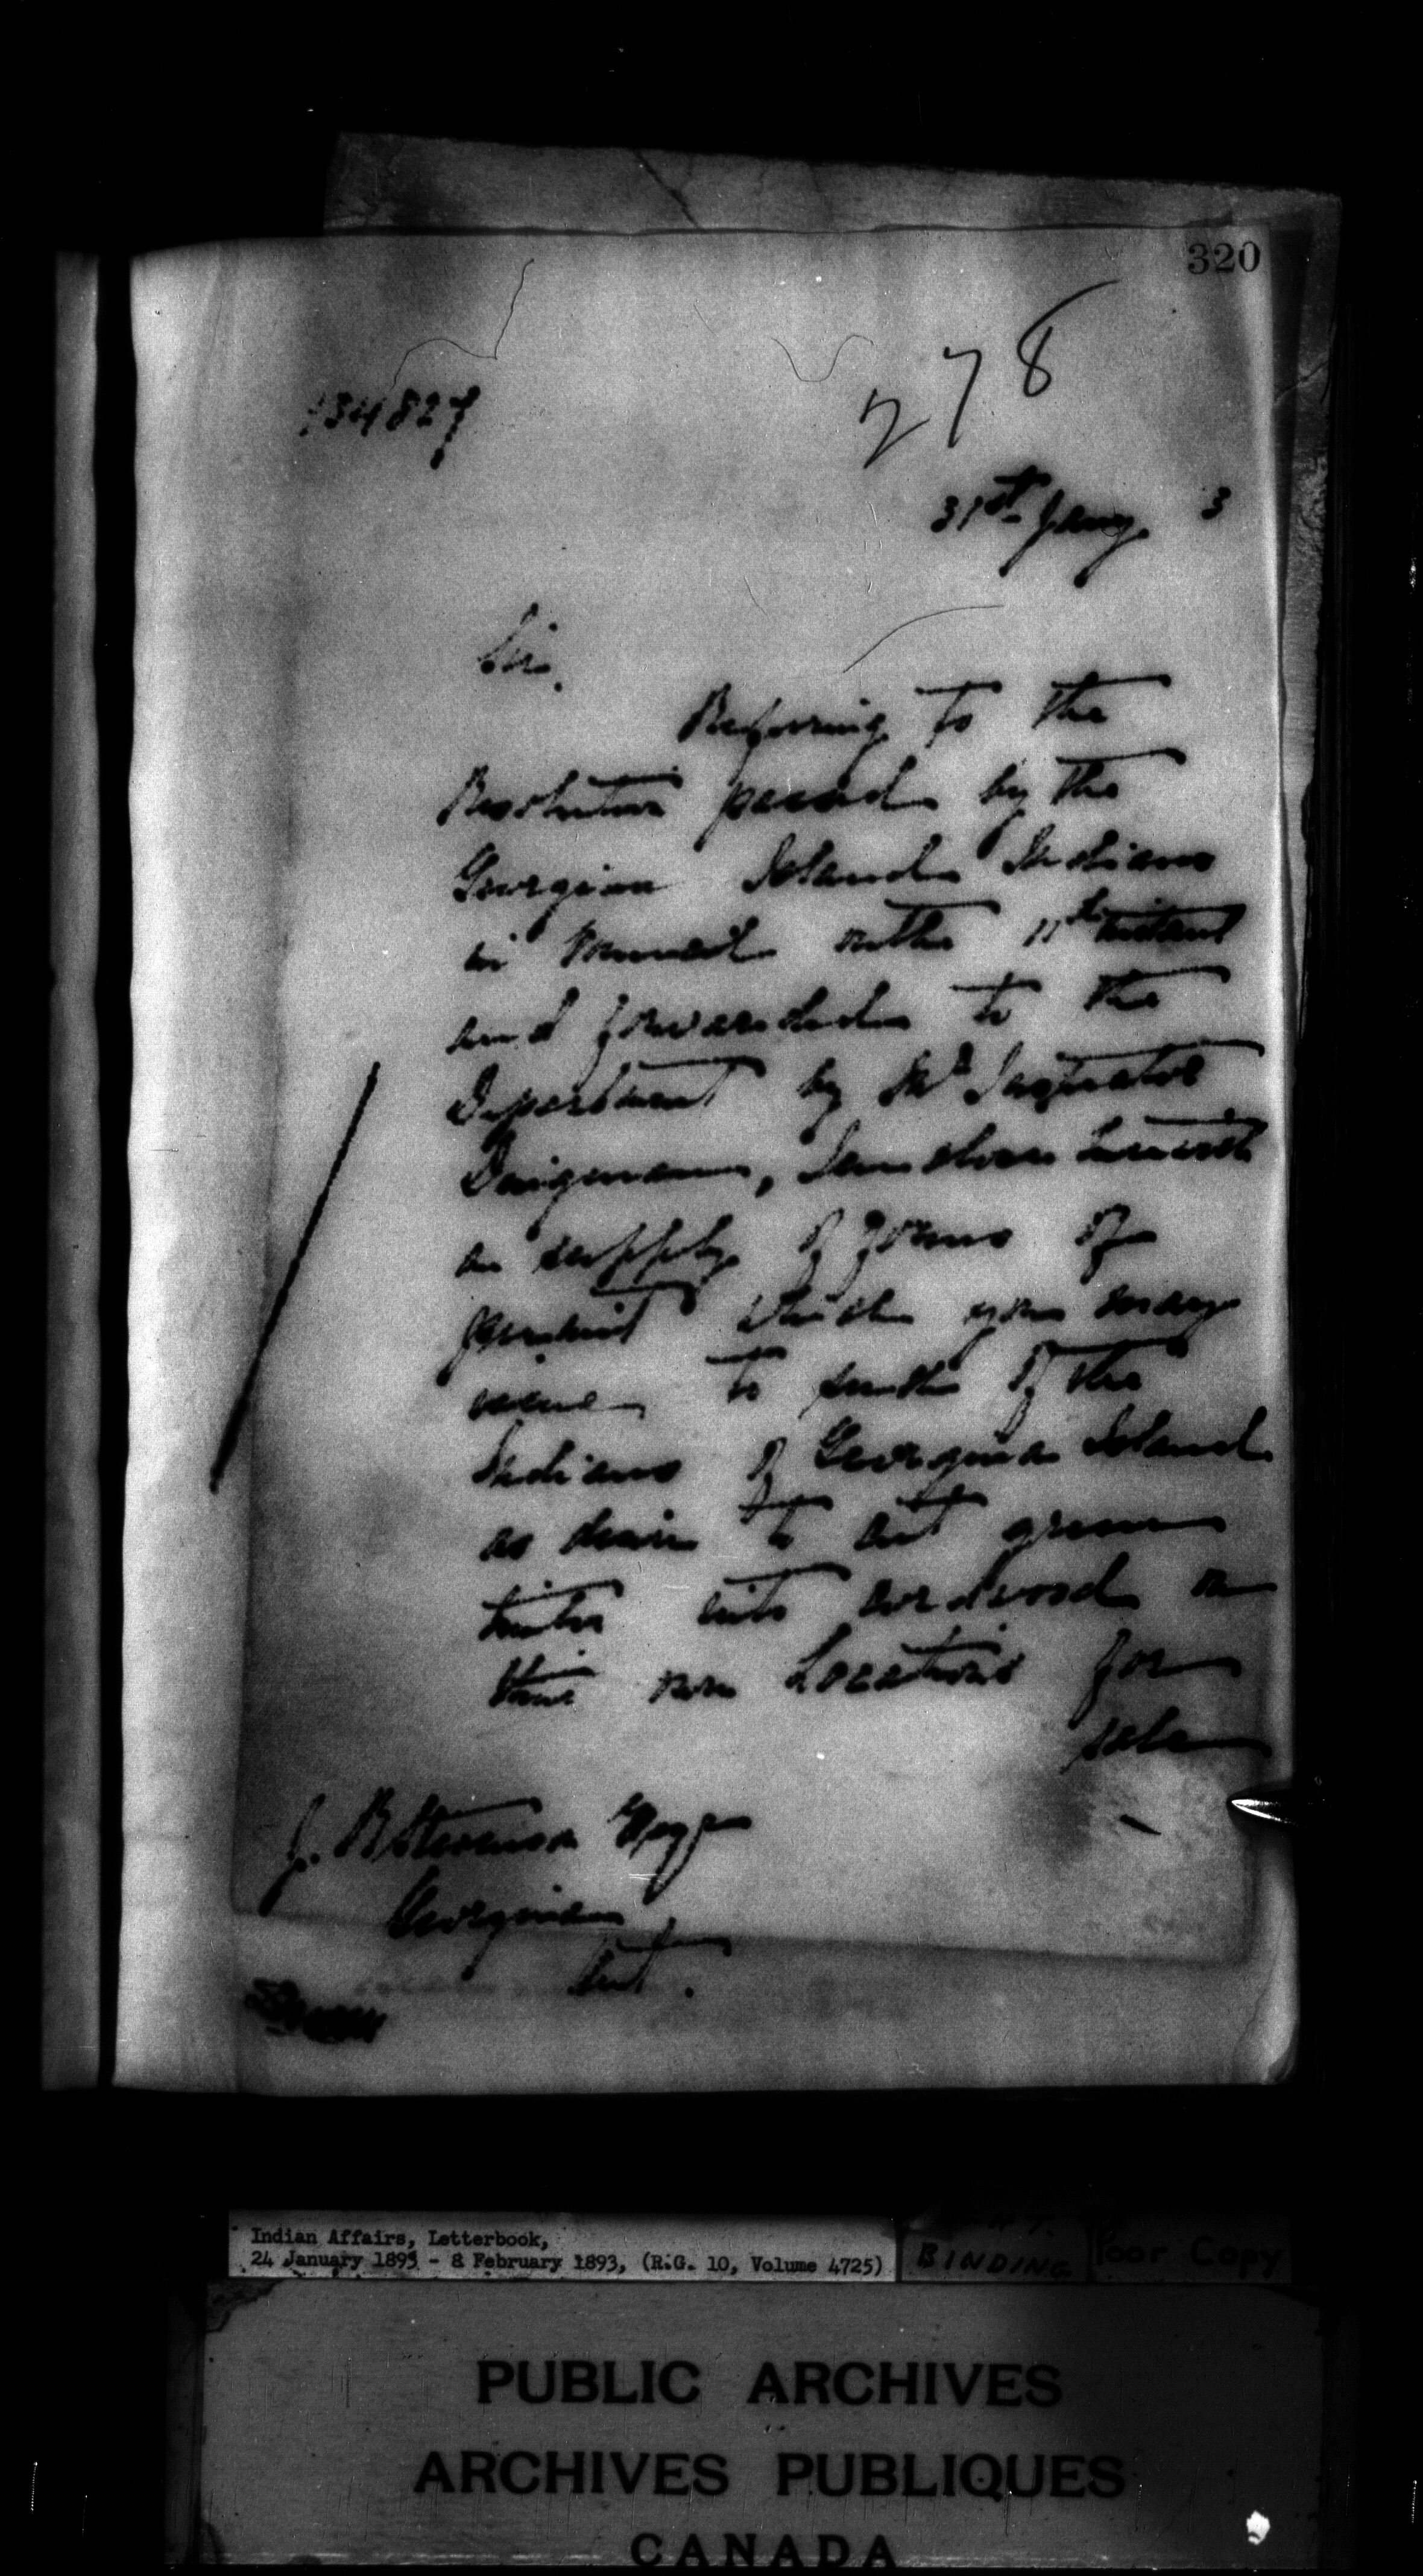 320
278
134827
31st Jany. 3
Sir,
Referring to the
Resolution passed by the
Georgina Island Indians
in Council on the 11th instant
and forwarded to the
Department by Mr Inspector
Dingman, I enclose herewith
a supply of forms of
permit which you may
issue to such of the
Indians of Georgina Island
as desire to cut green
timber into cordwood on
their own Locations for
sale
J. R. Stevenson Esqr
Georgina
Ont.
Indian Affairs, Letterbook,
24 January 1893 - 8 February 1893, (R.G. 10, Volume 4725)
BINDING
Poor Copy
PUBLIC ARCHIVES
ARCHIVES PUBLIQUES
CANADA